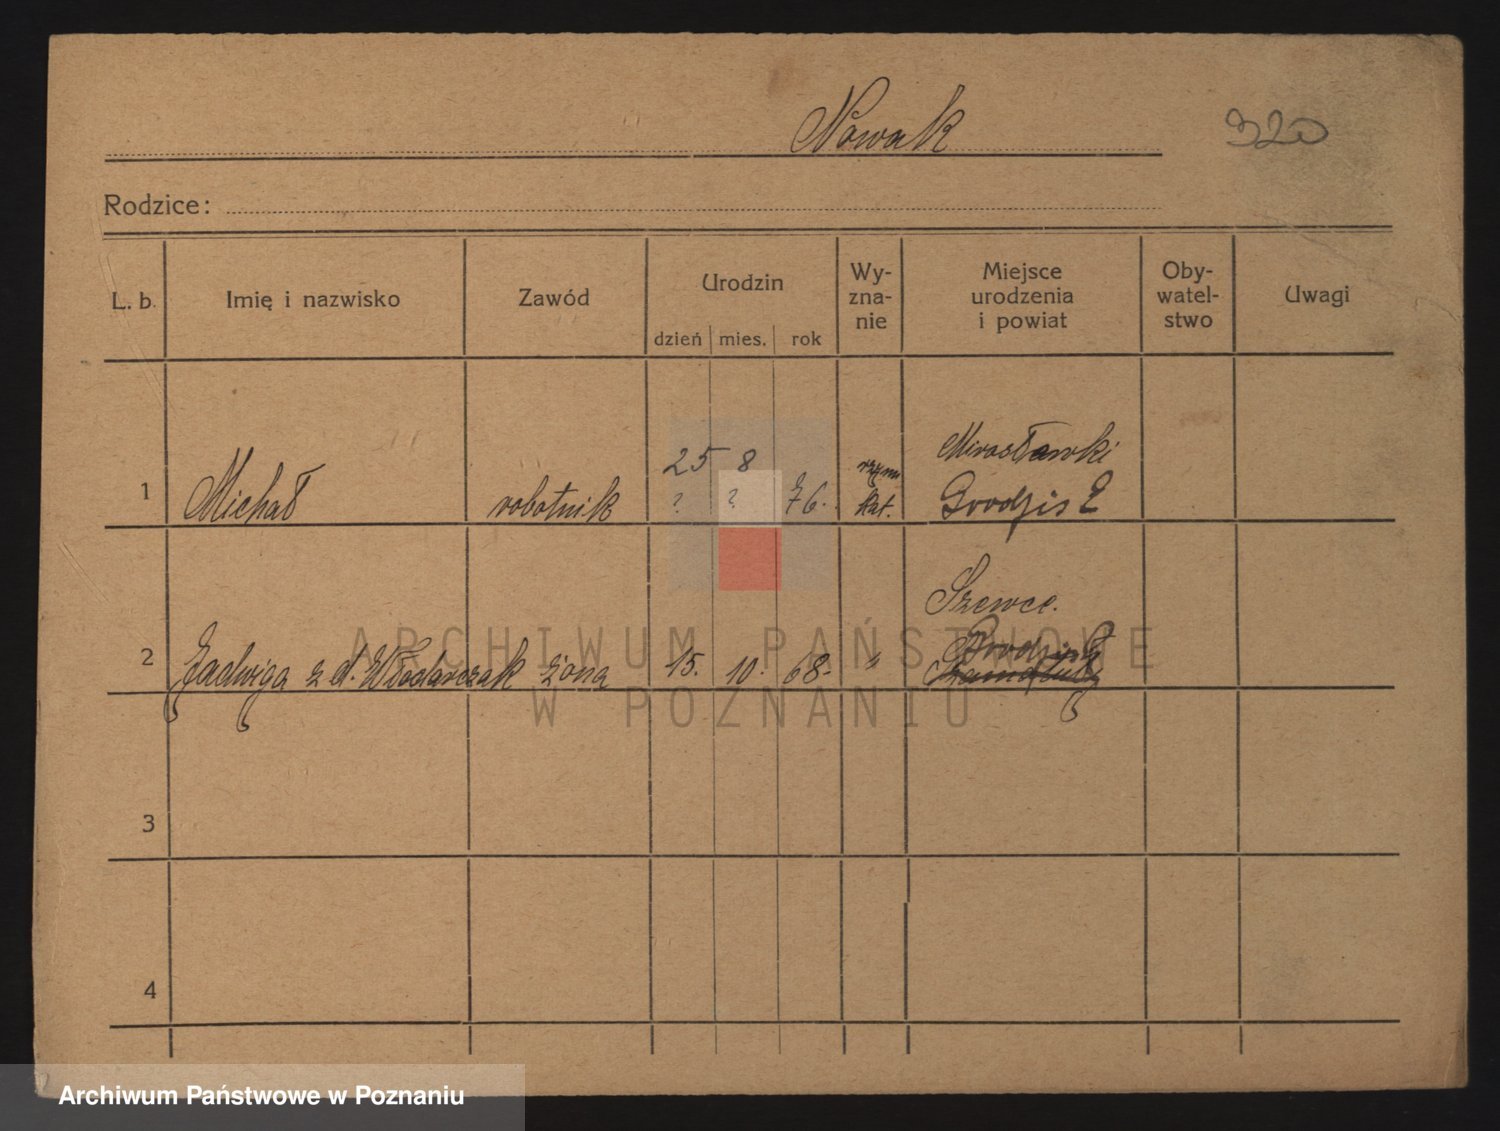 Nowak
320
Rodzice:
L. b. Imię i nazwisko Zawód Urodzin dzień mies. rok Wy-zna-nie Miejsce urodzenia i powiat Oby-watel-stwo Uwagi
25 8 rzym Mirosławki
1 Michał robotnik ? ? 76. kat. Grodzisk
Szewce.
Grodzisk
2 Jadwiga z d. Włodarczak żona 15. 10. 68. „
3
4
ARCHIWUM PAŃSTWOWE
W POZNANIU
Archiwum Państwowe w Poznaniu